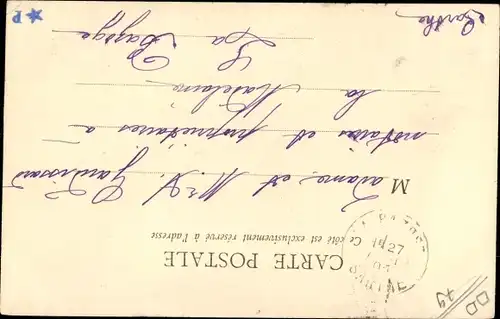 CARTE POSTALE
Ce côté est exclusivement réservé à l'adresse
Madame et Mr
notaires et propriétaires à
la Madelaine
La Bazoge
Sarthe
★P
27
DD